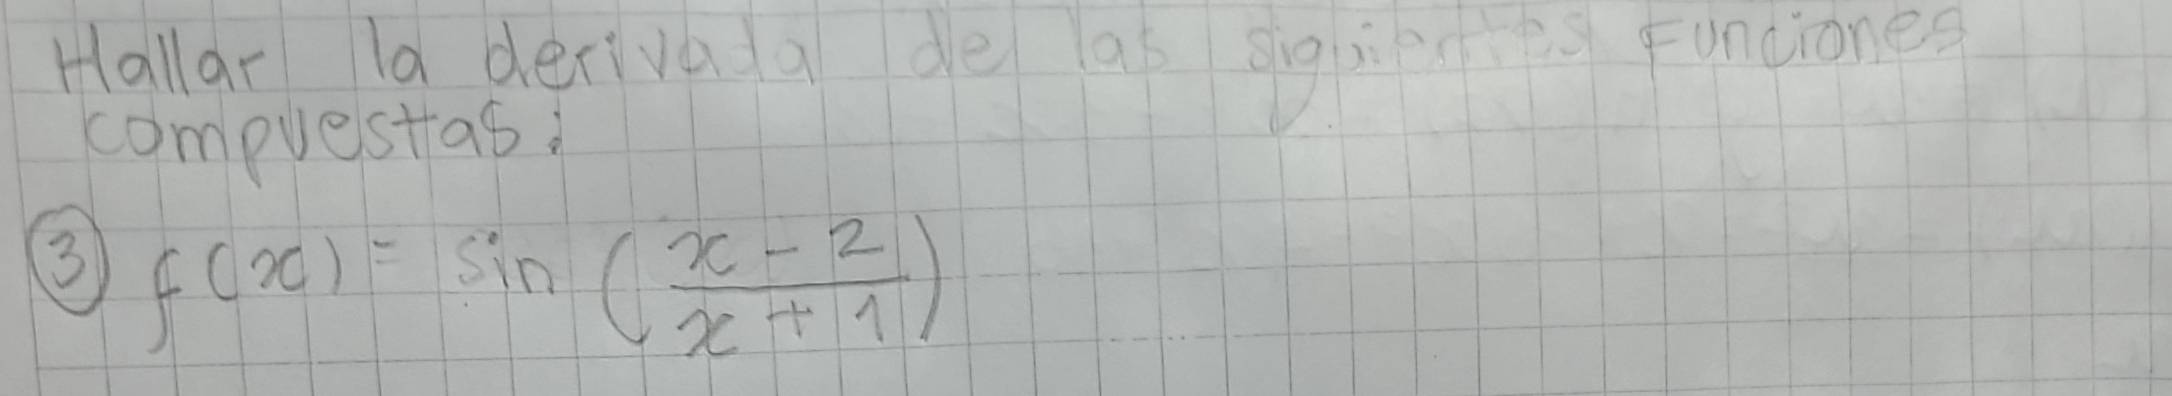 Hallar la derivada de las siguientes funciones
compuestas:
③ f(x) = sin (\frac{x - 2}{x + 1})